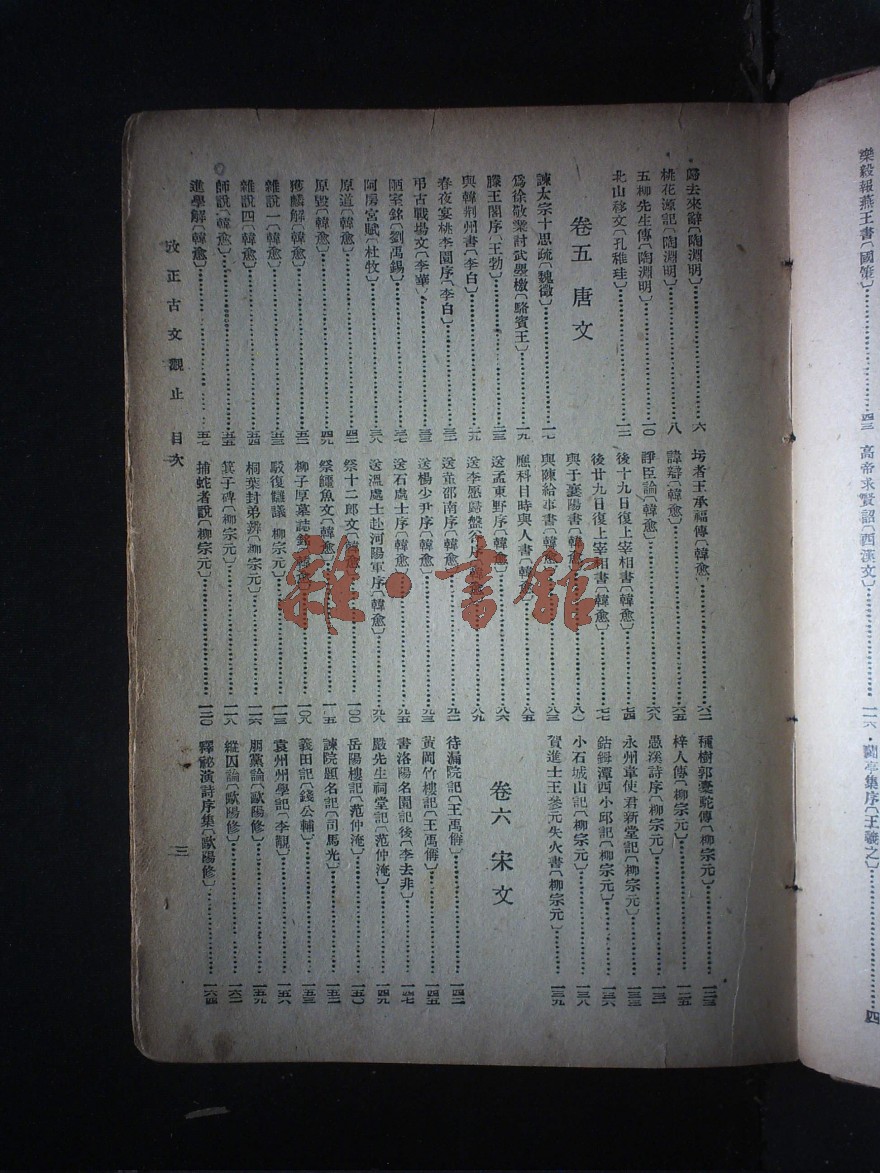 樂毅報燕王書〔國策〕……四三
高帝求賢詔〔西漢文〕……一一六
蘭亭集序〔王羲之〕……四
歸去來辭〔陶淵明〕……六
桃花源記〔陶淵明〕……八
五柳先生傳〔陶淵明〕……一〇
北山移文〔孔稚珪〕……一二
卷五 唐文
諫太宗十思疏〔魏徵〕……一七
爲徐敬業討武曌檄〔駱賓王〕……一九
滕王閣序〔王勃〕……二三
與韓荆州書〔李白〕……二九
春夜宴桃李園序〔李白〕……三二
弔古戰場文〔李華〕……三三
陋室銘〔劉禹錫〕……三七
阿房宮賦〔杜牧〕……三八
原道〔韓愈〕……四二
原毀〔韓愈〕……四九
獲麟解〔韓愈〕……五二
雜說一〔韓愈〕……五三
雜說四〔韓愈〕……五四
師說〔韓愈〕……五五
進學解〔韓愈〕……五七
圬者王承福傳〔韓愈〕……六二
諱辯〔韓愈〕……六五
諍臣論〔韓愈〕……六八
後十九日復上宰相書〔韓愈〕……七四
後廿九日復上宰相書〔韓愈〕……七七
與于襄陽書〔韓愈〕……八〇
與陳給事書〔韓愈〕……八三
應科目時與人書〔韓愈〕……八五
送孟東野序〔韓愈〕……八六
送李愿歸盤谷序……八九
送董邵南序〔韓愈〕……九二
送楊少尹序〔韓愈〕……九三
送石處士序〔韓愈〕……九五
送溫處士赴河陽軍序〔韓愈〕……九八
祭十二郎文〔韓愈〕……一〇〇
祭鱷魚文〔韓愈〕……一〇五
柳子厚墓誌銘〔韓愈〕……一〇九
駁復讎議〔柳宗元〕……一一三
桐葉封弟辨〔柳宗元〕……一一六
箕子碑〔柳宗元〕……一一八
捕蛇者說〔柳宗元〕……一二〇
種樹郭橐駝傳〔柳宗元〕……一二三
梓人傳〔柳宗元〕……一二五
愚溪詩序〔柳宗元〕……一三一
永州韋使君新堂記〔柳宗元〕……一三三
鈷鉧潭西小邱記〔柳宗元〕……一三六
小石城山記〔柳宗元〕……一三八
賀進士王參元失火書〔柳宗元〕……一三九
卷六 宋文
待漏院記〔王禹偁〕……一四二
黃岡竹樓記〔王禹偁〕……一四五
書洛陽名園記後〔李去非〕……一四七
嚴先生祠堂記〔范仲淹〕……一四九
岳陽樓記〔范仲淹〕……一五〇
諫院題名記〔司馬光〕……一五二
義田記〔錢公輔〕……一五三
袁州州學記〔李覯〕……一五六
朋黨論〔歐陽修〕……一五九
縱囚論〔歐陽修〕……一六二
釋祕演詩序集〔歐陽修〕……一六四
改正古文觀止 目次
三
雜·書館